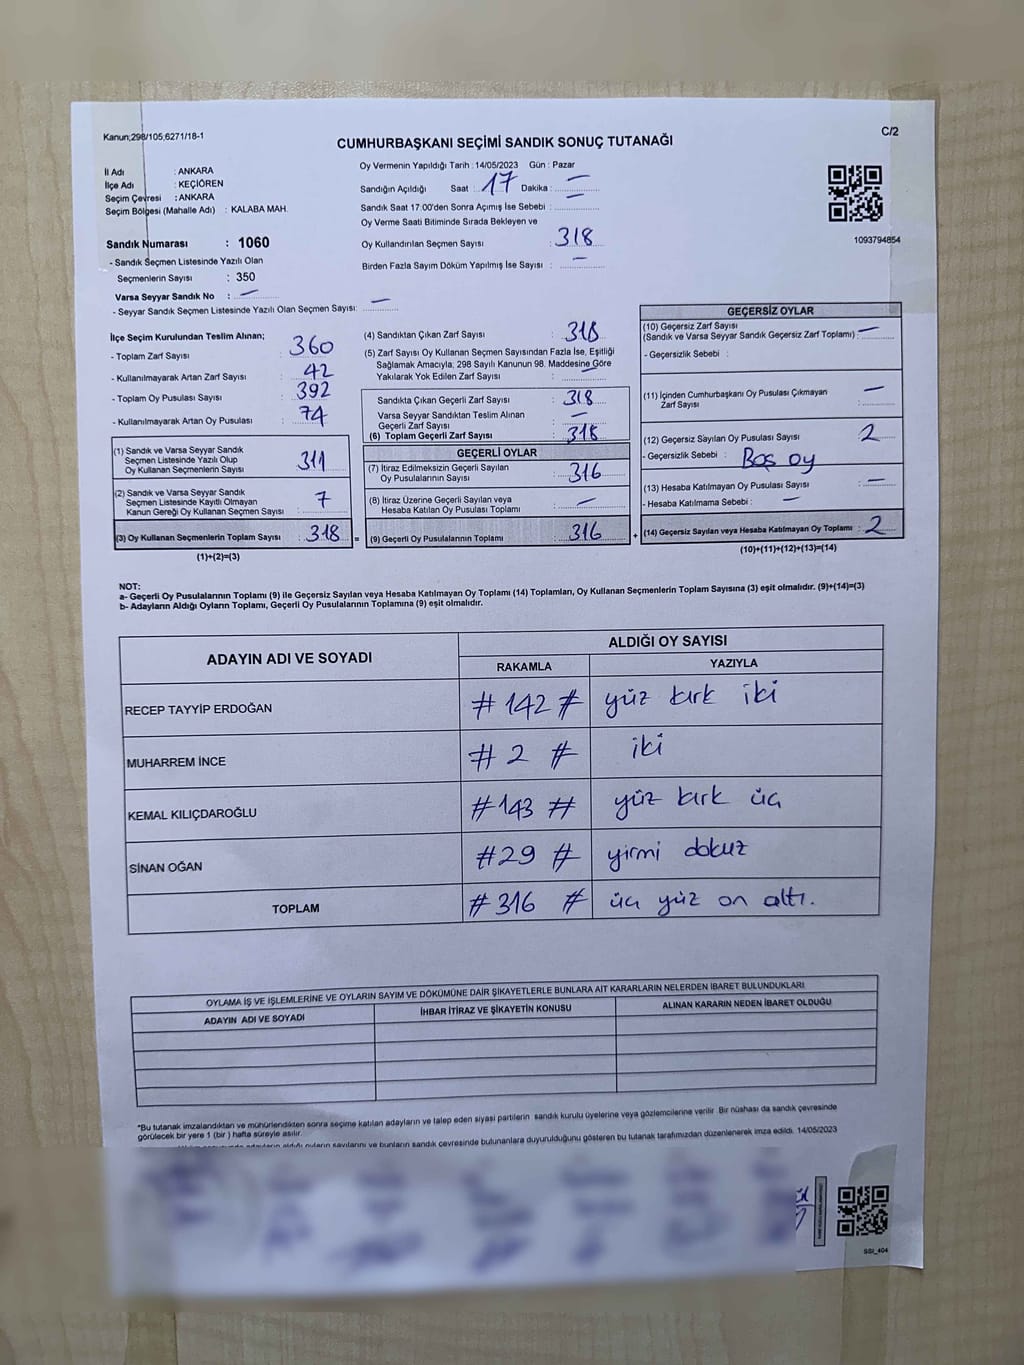 Kanun;298/105,6271/18-1
C/2
CUMHURBAŞKANI SEÇİMİ SANDIK SONUÇ TUTANAĞI
İl Adı : ANKARA
İlçe Adı : KEÇİÖREN
Seçim Çevresi : ANKARA
Seçim Bölgesi (Mahalle Adı) : KALABA MAH.
Sandık Numarası : 1060
- Sandık Seçmen Listesinde Yazılı Olan
Seçmenlerin Sayısı : 350
Varsa Seyyar Sandık No : —
- Seyyar Sandık Seçmen Listesinde Yazılı Olan Seçmen Sayısı: —
Oy Vermenin Yapıldığı Tarih : 14/05/2023 Gün : Pazar
Sandığın Açıldığı Saat : 17 Dakika : —
Sandık Saat 17:00'den Sonra Açımış İse Sebebi : —
Oy Verme Saati Bitiminde Sırada Bekleyen ve
Oy Kullandırılan Seçmen Sayısı : 318
Birden Fazla Sayım Döküm Yapılmış İse Sayısı : —
1093794854
İlçe Seçim Kurulundan Teslim Alınan;
- Toplam Zarf Sayısı : 360
- Kullanılmayarak Artan Zarf Sayısı : 42
- Toplam Oy Pusulası Sayısı : 392
- Kullanılmayarak Artan Oy Pusulası : 74
(1) Sandık ve Varsa Seyyar Sandık
Seçmen Listesinde Yazılı Olup
Oy Kullanan Seçmenlerin Sayısı : 311
(2) Sandık ve Varsa Seyyar Sandık
Seçmen Listesinde Kayıtlı Olmayan
Kanun Gereği Oy Kullanan Seçmen Sayısı : 7
(3) Oy Kullanan Seçmenlerin Toplam Sayısı : 318 =
(1)+(2)=(3)
(4) Sandıktan Çıkan Zarf Sayısı : 318
(5) Zarf Sayısı Oy Kullanan Seçmen Sayısından Fazla İse, Eşitliği
Sağlamak Amacıyla, 298 Sayılı Kanunun 98. Maddesine Göre
Yakılarak Yok Edilen Zarf Sayısı : —
Sandıkta Çıkan Geçerli Zarf Sayısı : 318
Varsa Seyyar Sandıktan Teslim Alınan
Geçerli Zarf Sayısı : —
(6) Toplam Geçerli Zarf Sayısı : 318
GEÇERLİ OYLAR
(7) İtiraz Edilmeksizin Geçerli Sayılan
Oy Pusulalarının Sayısı : 316
(8) İtiraz Üzerine Geçerli Sayılan veya
Hesaba Katılan Oy Pusulası Toplamı : —
(9) Geçerli Oy Pusulalarının Toplamı : 316 +
GEÇERSİZ OYLAR
(10) Geçersiz Zarf Sayısı
(Sandık ve Varsa Seyyar Sandık Geçersiz Zarf Toplamı) : —
- Geçersizlik Sebebi :
(11) İçinden Cumhurbaşkanı Oy Pusulası Çıkmayan
Zarf Sayısı : —
(12) Geçersiz Sayılan Oy Pusulası Sayısı : 2
- Geçersizlik Sebebi : Boş oy
(13) Hesaba Katılmayan Oy Pusulası Sayısı : —
- Hesaba Katılmama Sebebi : —
(14) Geçersiz Sayılan veya Hesaba Katılmayan Oy Toplamı : 2
(10)+(11)+(12)+(13)=(14)
NOT:
a- Geçerli Oy Pusulalarının Toplamı (9) ile Geçersiz Sayılan veya Hesaba Katılmayan Oy Toplamı (14) Toplamları, Oy Kullanan Seçmenlerin Toplam Sayısına (3) eşit olmalıdır. (9)+(14)=(3)
b- Adayların Aldığı Oyların Toplamı, Geçerli Oy Pusulalarının Toplamına (9) eşit olmalıdır.
ADAYIN ADI VE SOYADI ALDIĞI OY SAYISI
RAKAMLA YAZIYLA
RECEP TAYYİP ERDOĞAN # 142 # yüz kırk iki
MUHARREM İNCE # 2 # iki
KEMAL KILIÇDAROĞLU # 143 # yüz kırk üç
SİNAN OĞAN # 29 # yirmi dokuz
TOPLAM # 316 # üç yüz on altı.
OYLAMA İŞ VE İŞLEMLERİNE VE OYLARIN SAYIM VE DÖKÜMÜNE DAİR ŞİKAYETLERLE BUNLARA AİT KARARLARIN NELERDEN İBARET BULUNDUKLARI
ADAYIN ADI VE SOYADI İHBAR İTİRAZ VE ŞİKAYETİN KONUSU ALINAN KARARIN NEDEN İBARET OLDUĞU
*Bu tutanak imzalandıktan ve mühürlendikten sonra seçime katılan adayların ve talep eden siyasi partilerin sandık kurulu üyelerine veya gözlemcilerine verilir. Bir nüshası da sandık çevresinde
görülecek bir yere 1 (bir ) hafta süreyle asılır.
adayların aldığı oyların sayılarını ve bunların sandık çevresinde bulunanlara duyurulduğunu gösteren bu tutanak tarafımızdan düzenlenerek imza edildi. 14/05/2023
SSI_404